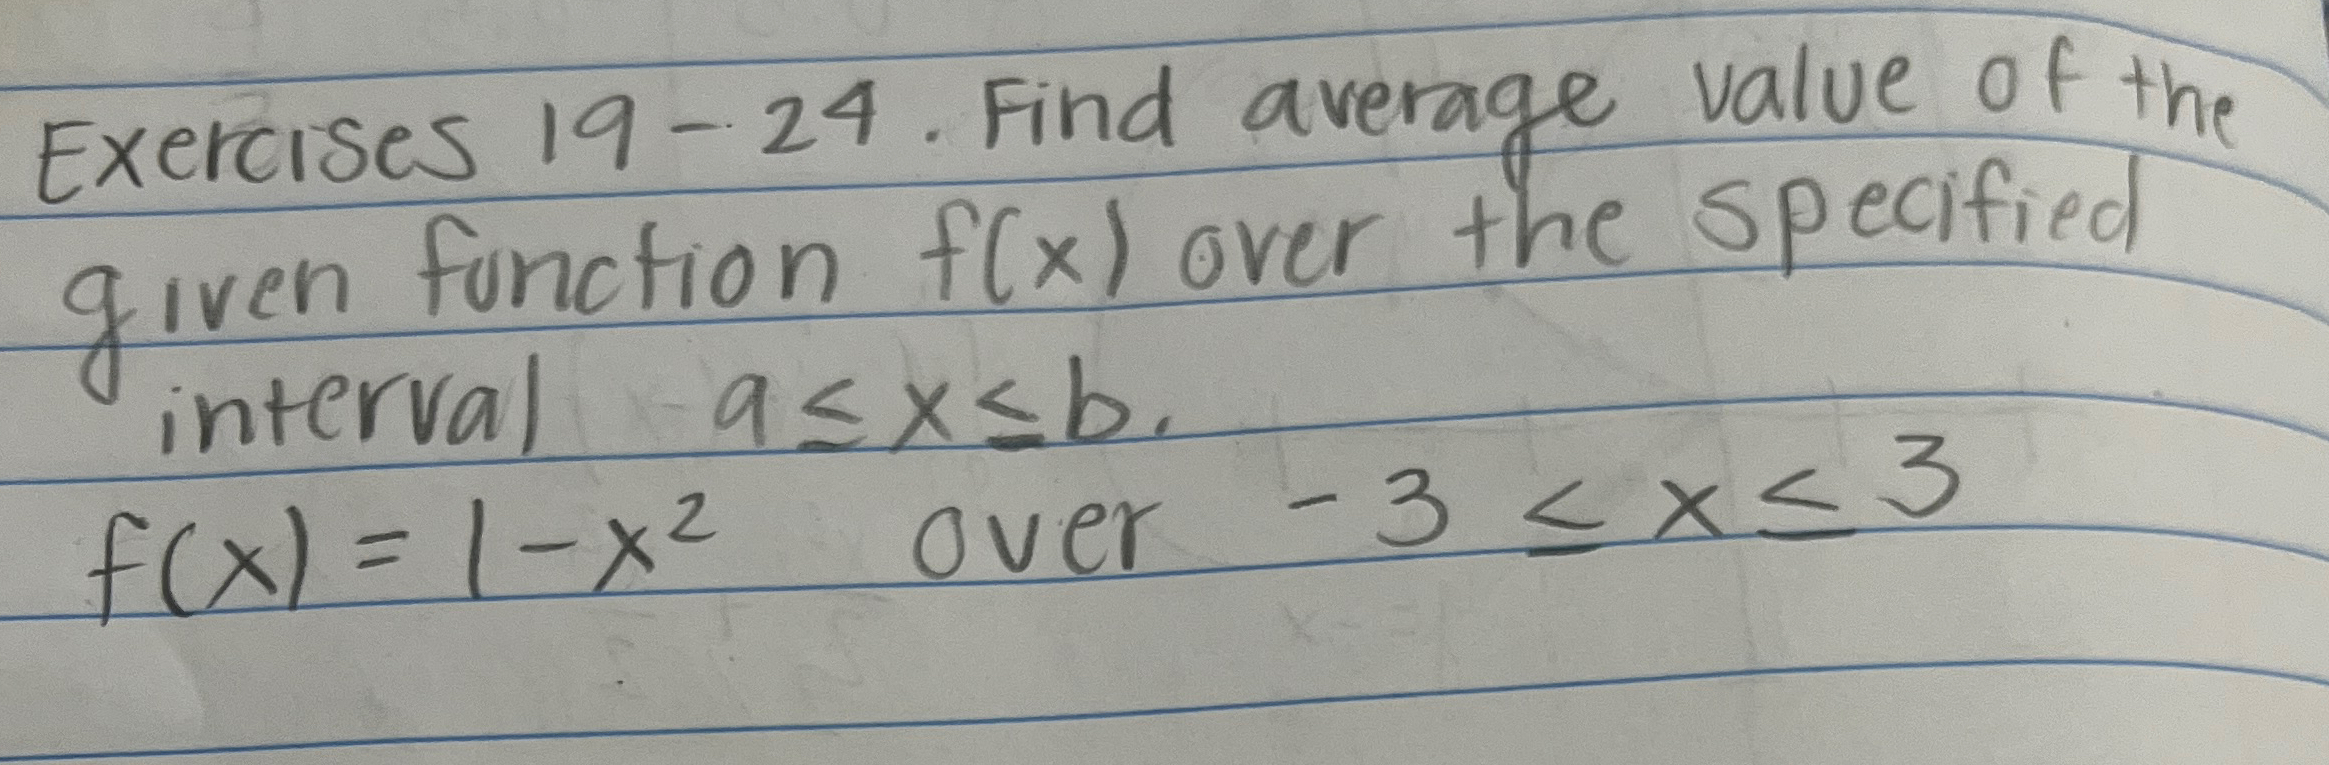 Exercises 19 - 24. Find average value of the
given function f(x) over the specified
interval a ≤ x ≤ b.
f(x) = 1 - x² over - 3 ≤ x ≤ 3